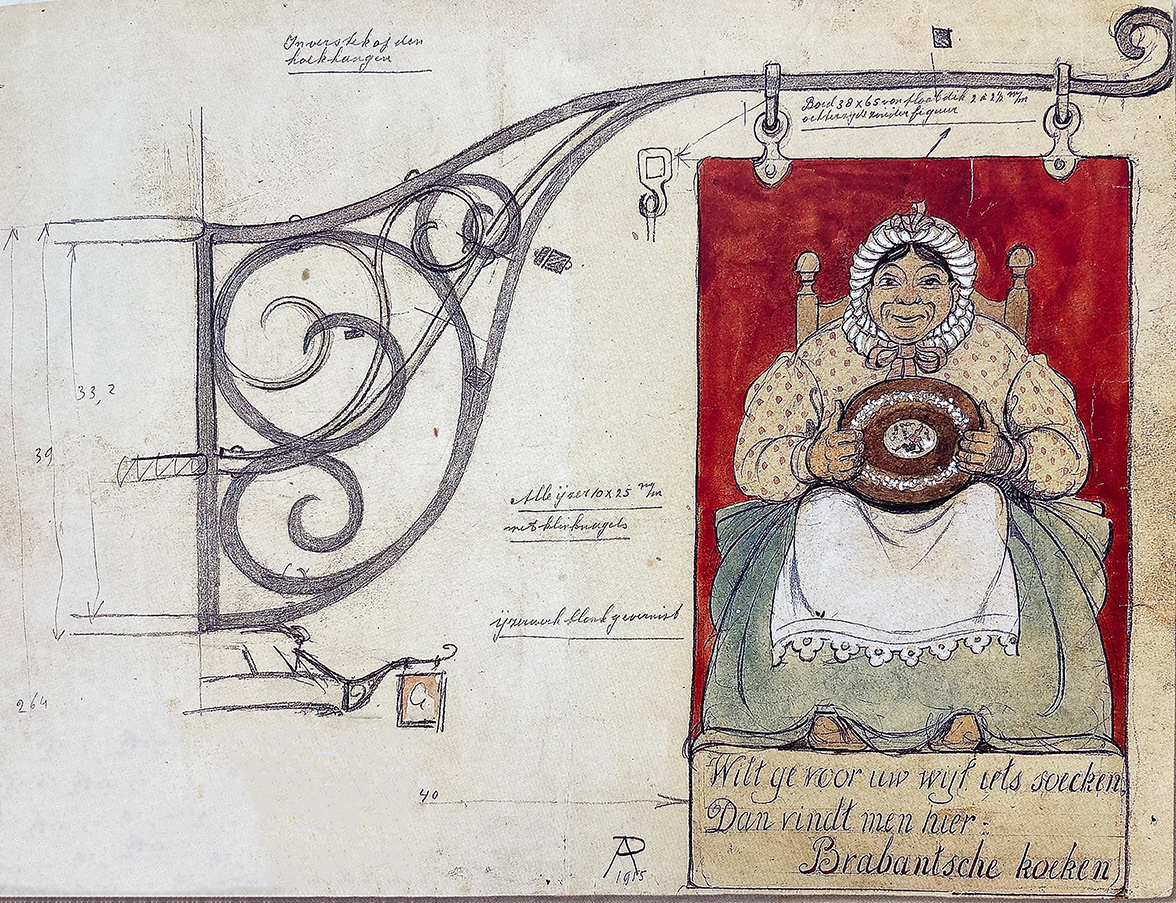 In verstek of den
hoek hangen
Bord 38 x 65 van plaat dik 2 à 2½ m/m
achterzijde zonder figuur
33,2
39
Alle ijzer 10 x 25 m/m
met klinknagels
ijzerwerk blank gevernist
264
G
40
AR
1915
Wilt ge voor uw wijf iets soecken,
Dan vindt men hier:
Brabantsche koeken